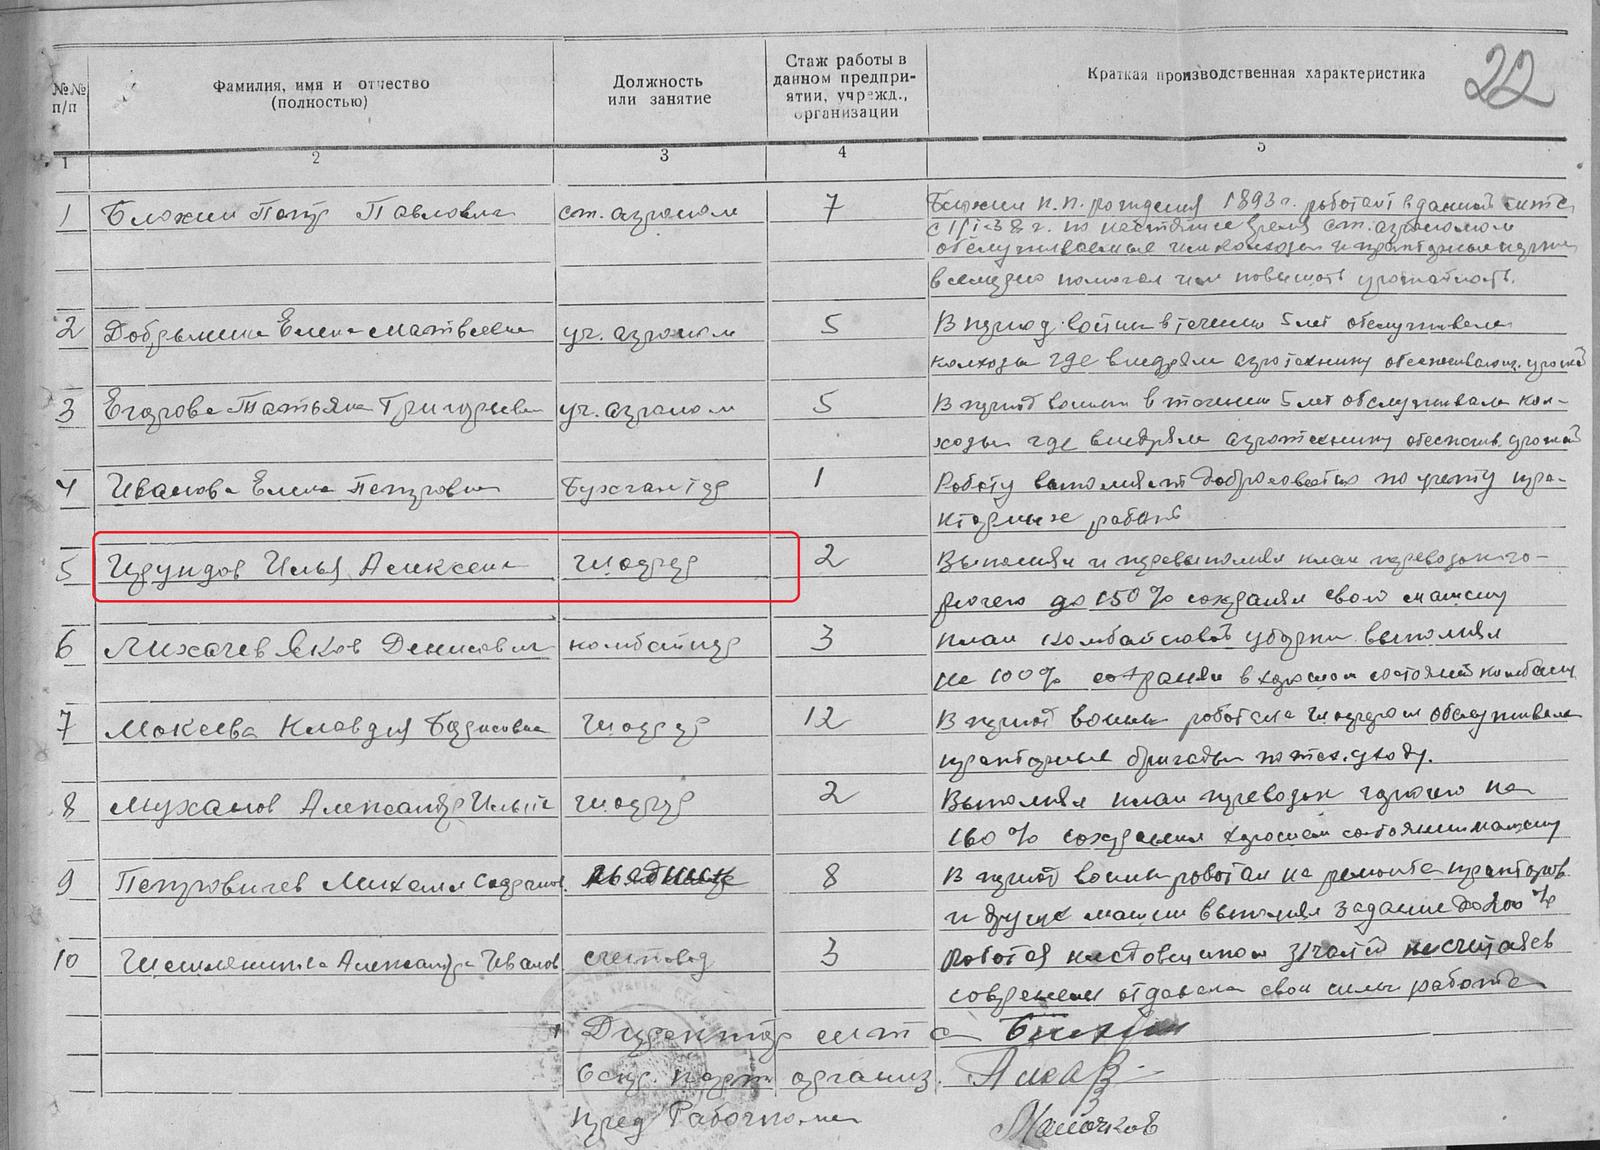 22
№№ п/п
Фамилия, имя и отчество (полностью)
Должность или занятие
Стаж работы в данном предприятии, учрежд., организации
Краткая производственная характеристика
1 2 3 4 5
1 Блохин Петр Павлович ст. агроном 7 Блохин П.П. рождения 1893 г. работает в данной мтс
с 1/I-38 г. по настоящее время ст. агрономом
обслуживаемые им колхозы и тракторные
всемерно помогал им повышать урожайность.
2 Добрынина Елена Матвеевна уч. агроном 5 В период войны в течении 5 лет обслуживала
колхозы где внедряла агротехнику
3 Егорова Татьяна Григорьевна уч. агроном 5 В период войны в течении 5 лет обслуживала кол-
хозы где внедряла агротехнику
4 Иванова Елена Петровна Бухгалтер 1 Работу выполняет добросовестно по учету тра-
кторных работ
5 Илья Алексеев шофер 2 Выполнял и перевыполнял план перевозок го-
рючего до 150% сохранял свою машину
6 Лихачев Яков Денисович комбайнер 3 план комбайновой уборки выполнял
на 100% сохранял в хорошем состоянии комбайн
7 Мокеева Клавдия Борисовна шофер 12 В период войны работала шофером обслуживала
тракторные бригады по тех. уходу.
8 Муханов Александр Ильич шофер 2 Выполнял план перевозок горючего на
160% сохранял хорошем состоянии машину
9 Петровичев Михаил 8 В период войны работал на ремонте тракторов
и других машин выполнял задание до 200%
10 Александра Иванов счетовод 3 Работая
отдавала свои силы работе
Директор мтс
Секр. парт организ.
Пред Рабочкома